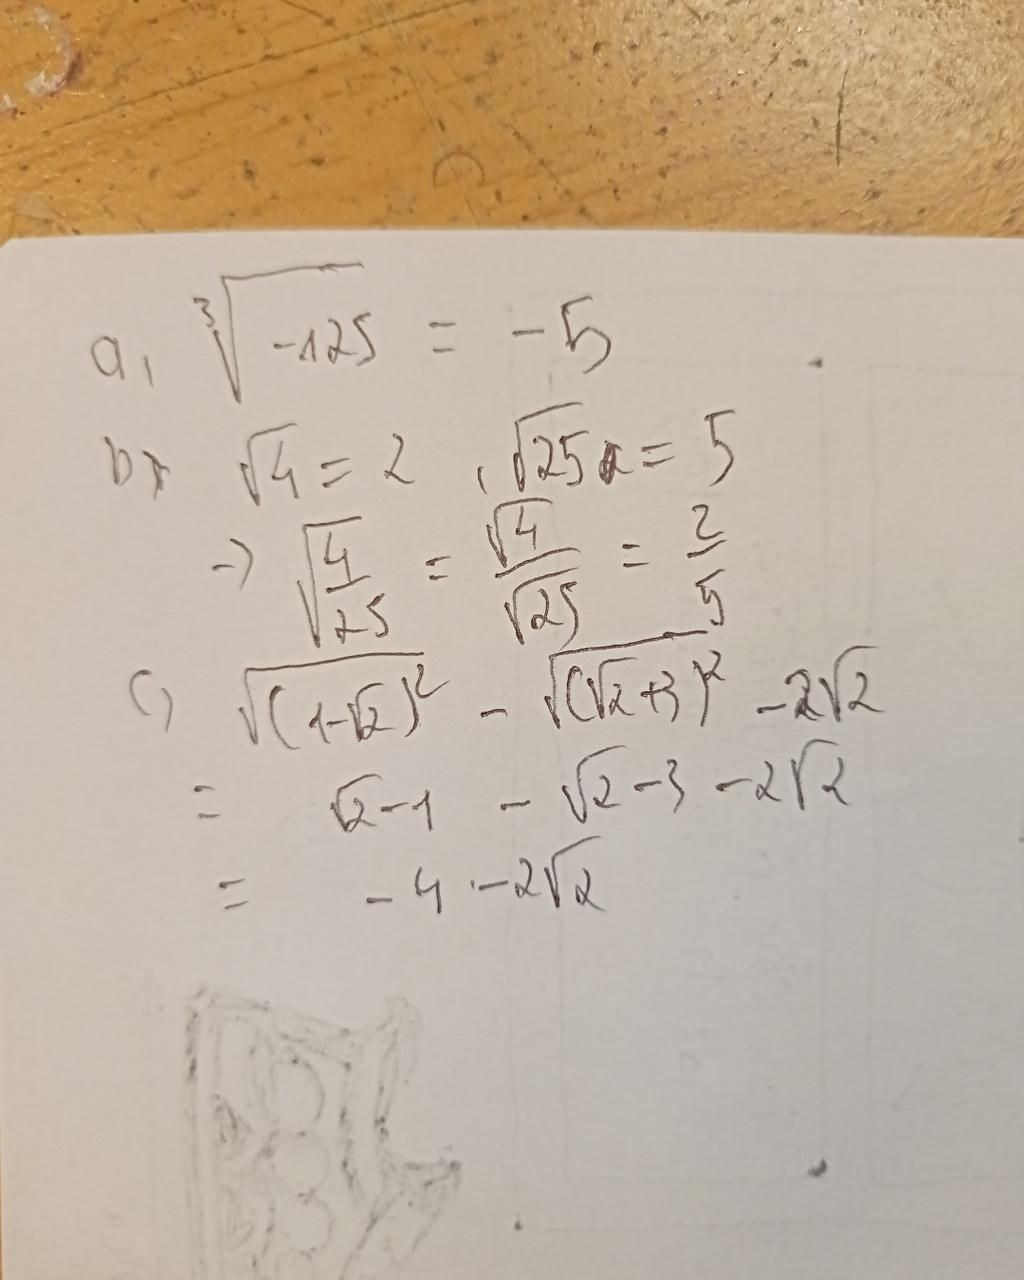 a, ∛-125 = -5
b, √4 = 2 , √25 = 5
→ √(4/25) = √4/√25 = 2/5
c, √(1-√2)² - √(√2+3)² - 2√2
= √2-1 - √2-3 - 2√2
= -4 - 2√2